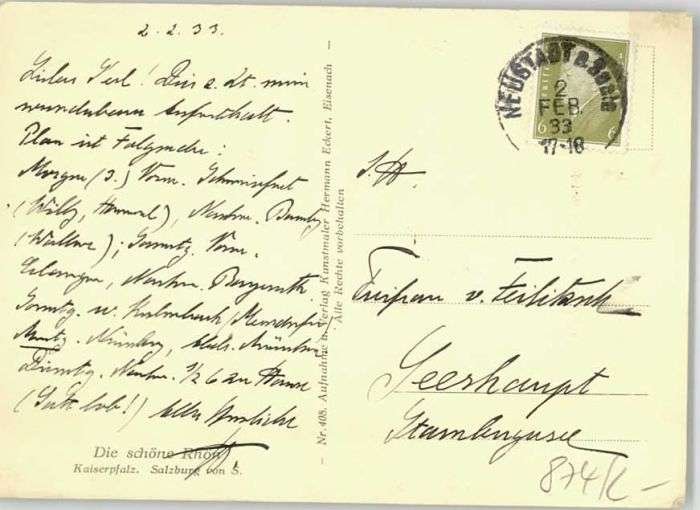 2.2.33.
Liebes! Dies z. Zt. mein
wunderbarer Aufenthalt.
Plan ist Folgender:
Morgen (3.) Vorm. Schweinfurt
(Willy, ), Nachm. Bamberg
; Samstg. Vorm.
Erlangen, Nachm.
Sonntg. u. Kulmbach
Montg. Nürnberg, München
Dienstg. Nachm. 1/2 6 zu Hause
(Gott lob!) Alles Herzliche
Die schöne Rhön
Kaiserpfalz. Salzburg von S.
Nr. 408. Aufnahme u. Verlag Kunstmaler Hermann Eckert, Eisenach
Alle Rechte vorbehalten
NEUSTADT a. Saale
2
FEB.
33
17-18
6 6
Freifrau v. Feilitzsch
Seeshaupt
Starnbergersee
874/2-